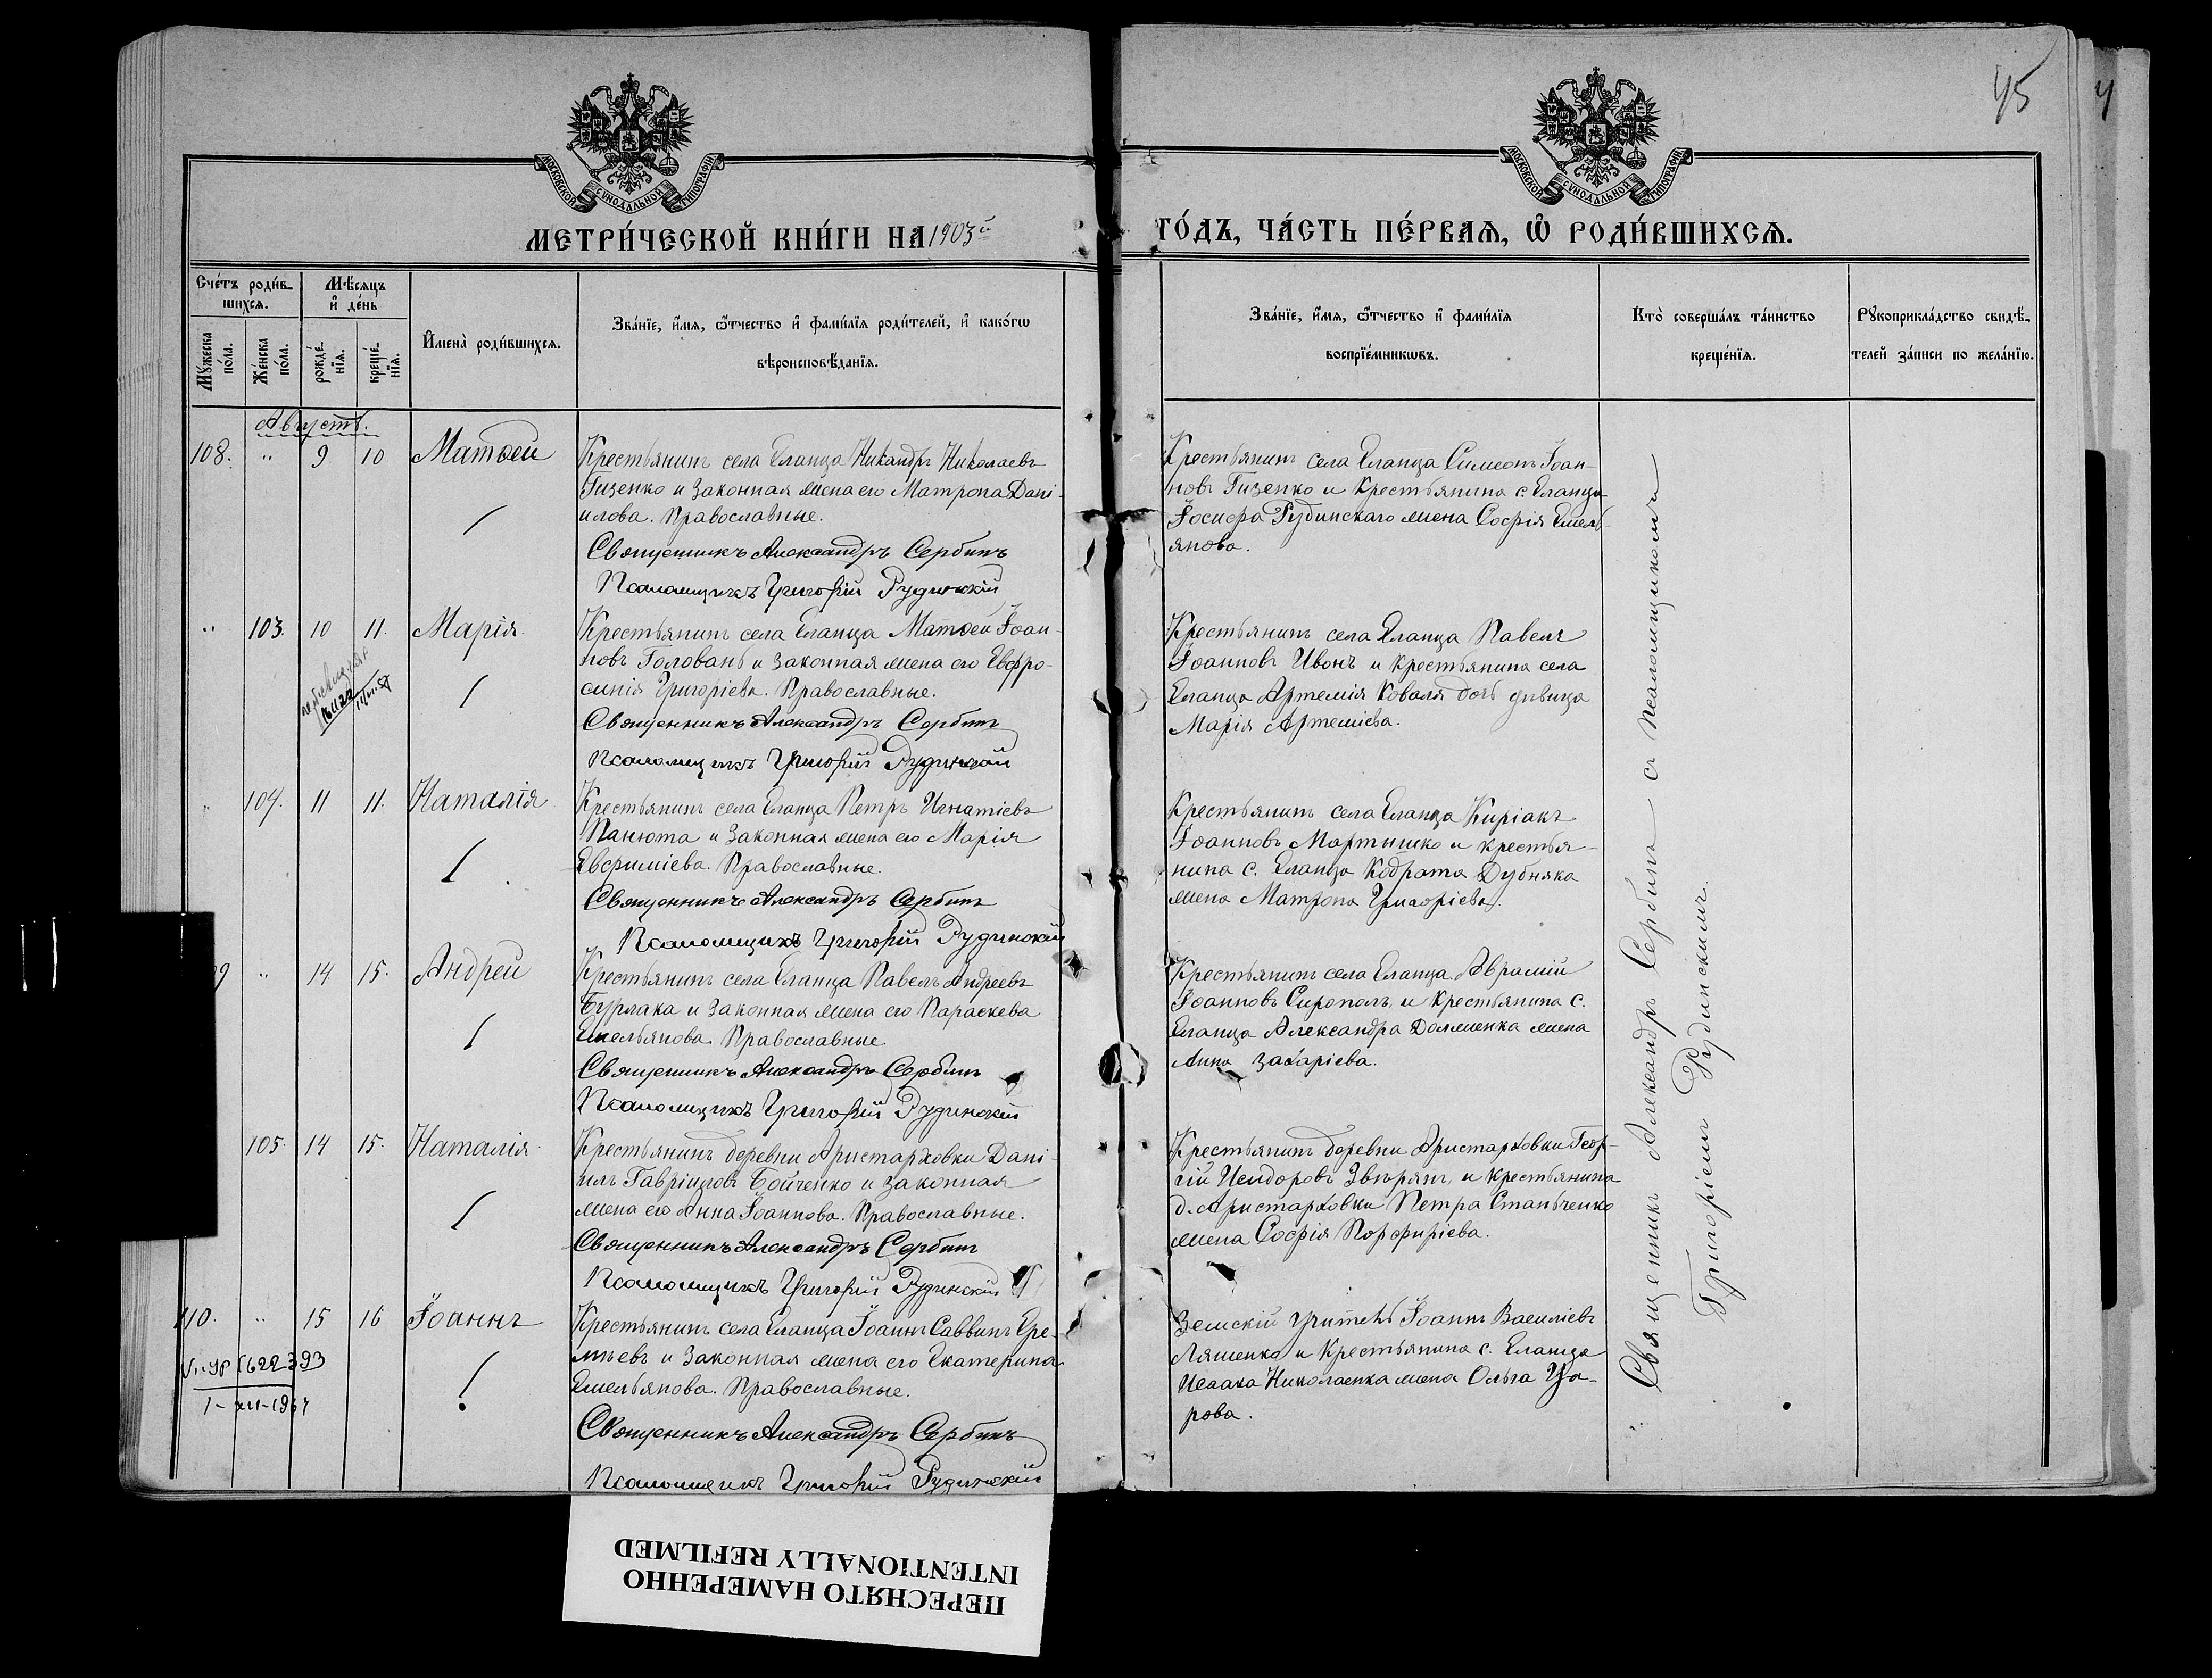 45
МОСКОВСКОЙ СѴНОДАЛЬНОЙ ТИПОГРАФІИ
МОСКОВСКОЙ СѴНОДАЛЬНОЙ ТИПОГРАФІИ
МЕТРИ́ЧЕСКОЙ КНИ́ГИ НА 1903й ГО́ДЪ, ЧА́СТЬ ПЕ́РВАѦ, Ѽ РОДИ́ВШИХСѦ.
Сче́тъ роди́в-
шихсѧ.
Мѣ́сѧцъ
и҆ де́нь
Мꙋ́жеска по́ла.
Же́нска по́ла.
рожде́-
нїѧ.
креще́-
нїѧ.
И҆мена̀ роди́вшихсѧ.
Зва́нїе, и҆́мѧ, ѻ҆́тчество и҆ фами́лїѧ роди́телей, и҆ како́гѡ
вѣроисповѣ́данїѧ.
Зва́нїе, и҆́мѧ, ѻ҆́тчество и҆ фами́лїѧ
воспрїе́мникѡвъ.
Кто̀ соверша́лъ та́инство
креще́нїѧ.
Рꙋкоприкла́дство свидѣ́-
телей за́писи по жела́нїю.
Августъ.
108. " 9 10 Матѳей
Крестьянинъ села Еланца Никандръ Николаевъ
Гизенко и законная жена его Матрона Дані-
илова. Православные.
Священникъ Александръ Сербинъ
Псаломщикъ Григорій Рудинскій
Крестьянинъ села Еланца Симеонъ Іоан-
новъ Гизенко и крестьянина с. Еланца
Іосифа Рудинскаго жена Софія Емель-
янова.
" 103. 10 11. Марія
Крестьянинъ села Еланца Матѳей Іоан-
новъ Головань и законная жена его Евфро-
синія Григоріева. Православные.
Священникъ Александръ Сербинъ
Псаломщикъ Григорій Рудинскій
Крестьянинъ села Еланца Павелъ
Іоанновъ Ивонъ и крестьянина села
Еланца Артемія Коваля дочь дѣвица
Марія Артеміева.
104. 11 11. Наталія
Крестьянинъ села Еланца Петръ Игнатіевъ
Панюта и законная жена его Марія
Евфиміева. Православные.
Священникъ Александръ Сербинъ
Псаломщикъ Григорій Рудинскій
Крестьянинъ села Еланца Киріакъ
Іоанновъ Мартышко и крестья-
нина с. Еланца Кодрата Дубняка
жена Матрона Григоріева.
9 " 14 15. Андрей
Крестьянинъ села Еланца Павелъ Андреевъ
Бурлака и законная жена его Параскева
Емельянова. Православные
Священникъ Александръ Сербинъ
Псаломщикъ Григорій Рудинскій
Крестьянинъ села Еланца Аврамій
Іоанновъ Сирополъ и крестьянина с.
Еланца Александра Долженка жена
Анна Захаріева.
105. 14 15. Наталія
Крестьянинъ деревни Аристарховки Дані-
илъ Гавріиловъ Бойченко и законная
жена его Анна Іоаннова. Православные.
Священникъ Александръ Сербинъ
Псаломщикъ Григорій Рудинскій
Крестьянинъ деревни Аристарховки Геор-
гій Исидоровъ Звѣрянъ, и крестьянина
д. Аристарховки Петра Станьченко
жена Софія Порфиріева.
110. " 15 16 Іоаннъ
Крестьянинъ села Еланца Іоаннъ Саввинъ Ере-
мѣевъ и законная жена его Екатерина
Емельянова. Православные.
Священникъ Александръ Сербинъ
Псаломщикъ Григорій Рудинскій
Земскій учитель Іоаннъ Василіевъ
Ляшенко и крестьянина с. Еланца
Исаака Николаенка жена Ольга Ува-
рова.
Священникъ Александръ Сербинъ съ псаломщикомъ
Григоріемъ Рудинскимъ.
ПЕРЕСНЯТО НАМЕРЕННО
INTENTIONALLY REFILMED